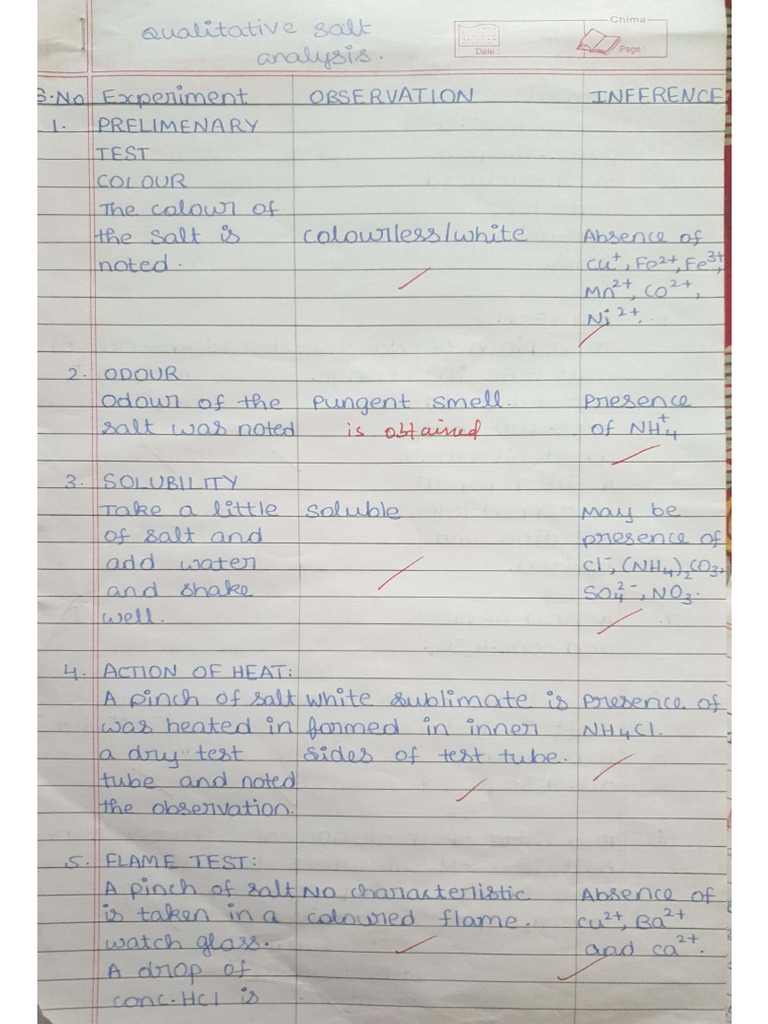 Qualitative salt
analysis.
Chima
Date :
Page :
S.No Experiment OBSERVATION INFERENCE
1. PRELIMENARY
TEST
COLOUR
The colour of
the salt is colourless/white Absence of
noted. Cu⁺, Fe²⁺, Fe³⁺,
Mn²⁺, Co²⁺,
Ni²⁺.
2. ODOUR
Odour of the Pungent smell. Presence
salt was noted is obtained of NH₄⁺
3. SOLUBILITY
Take a little soluble May be
of salt and presence of
add water Cl⁻, (NH₄)₂CO₃,
and shake SO₄²⁻, NO₃.
well.
4. ACTION OF HEAT:
A pinch of salt white sublimate is presence of
was heated in formed in inner NH₄Cl.
a dry test sides of test tube.
tube and noted
the observation.
5. FLAME TEST:
A pinch of salt No characteristic Absence of
is taken in a coloured flame. Cu²⁺, Ba²⁺
watch glass. and Ca²⁺.
A drop of
conc.HCl is